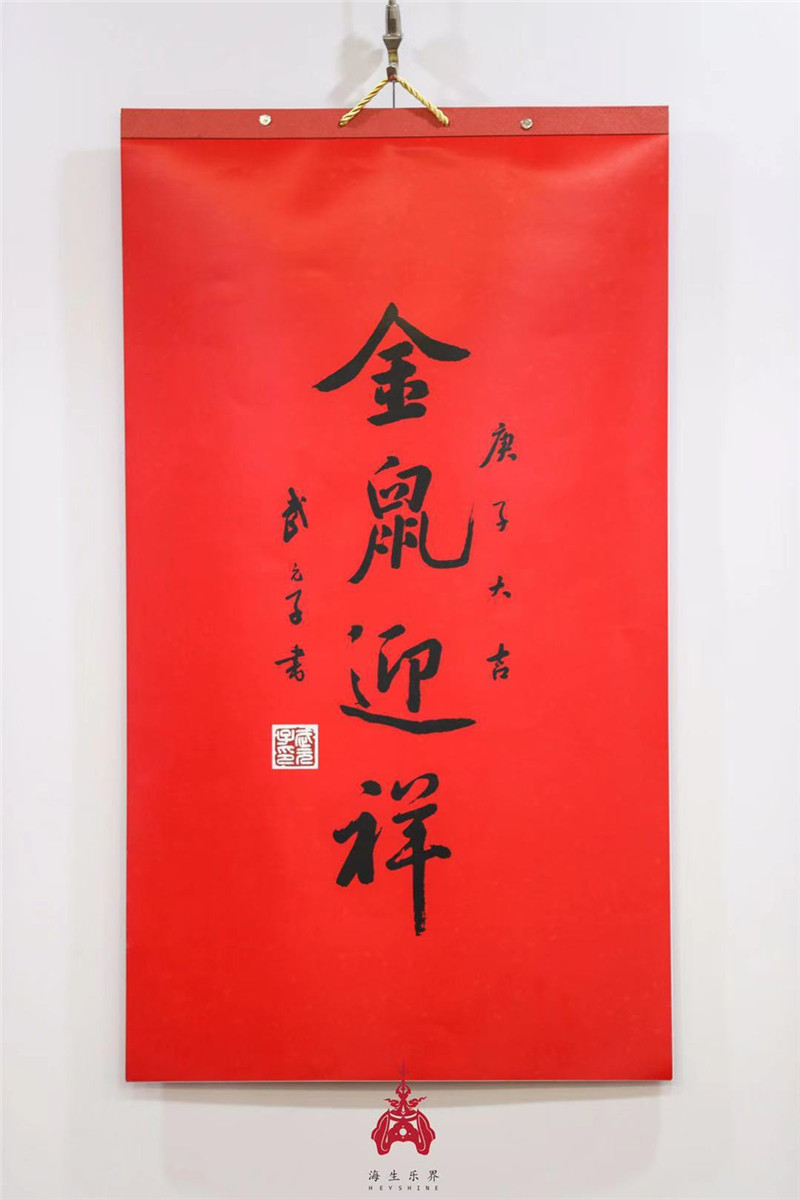 庚子大吉
金鼠迎祥
武元子书
武元子印
海生乐界
HEYSHINE